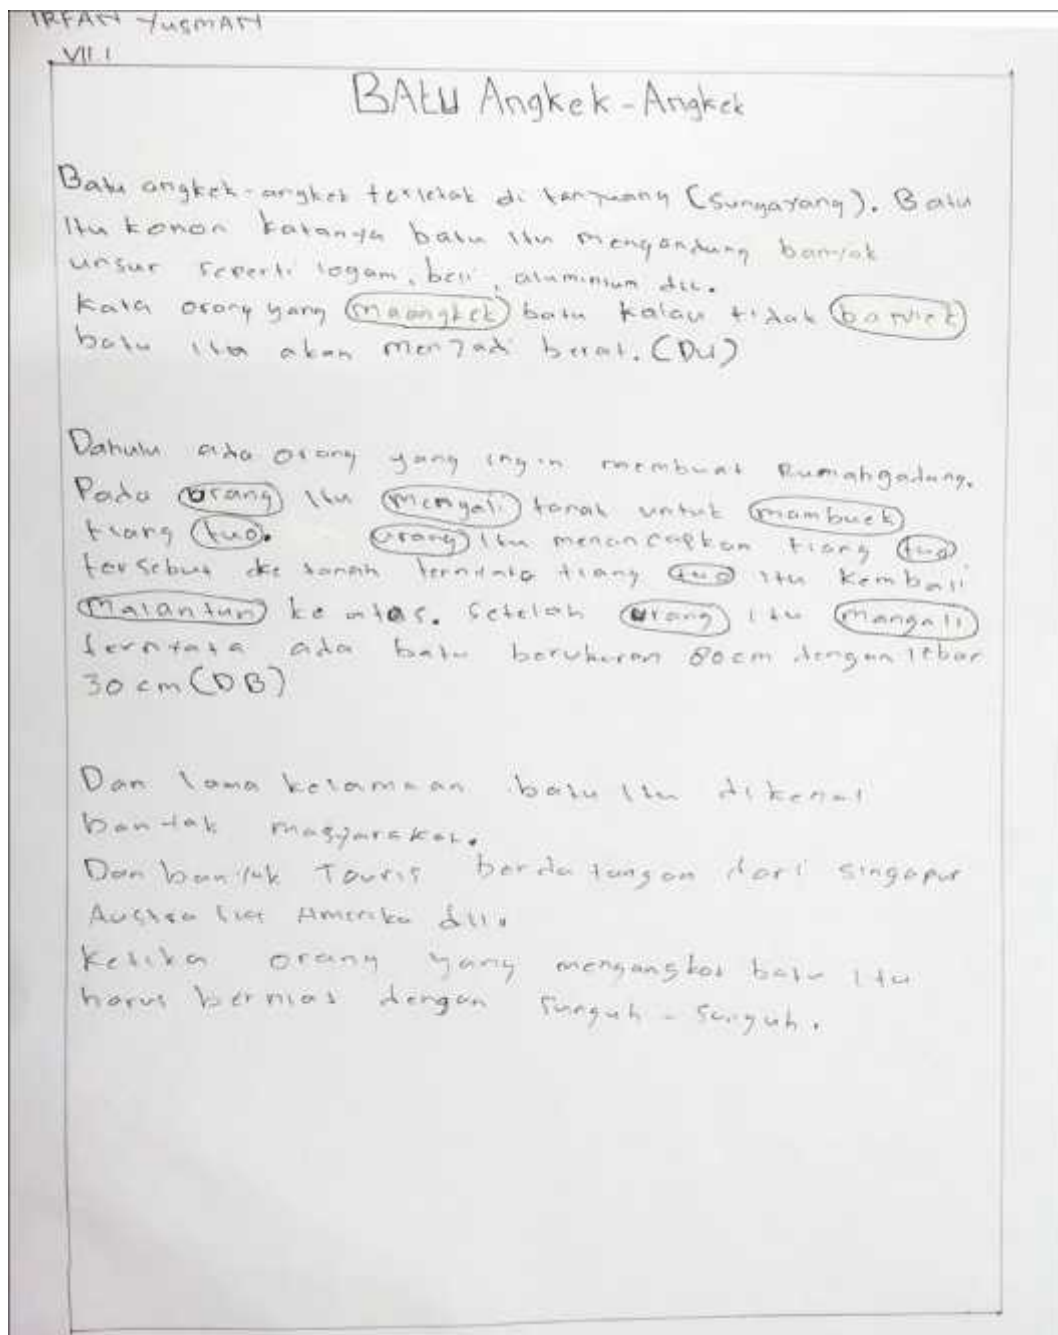 IRFAN YUSMAN
VII.1
BATU Angkek-Angkek
Batu angkek-angkek terletak di tanjuang (Sungayang). Batu
itu konon katanya batu itu mengandung banyak
unsur seperti logam, besi, aluminium dll.
Kata orang yang maangkek batu kalau tidak baniek
batu itu akan menjadi berat. (DU)
Dahulu ada orang yang ingin membuat Rumahgadang.
Pada urang itu mengali tanah untuk mambuek
tiang tuo. urang itu menancapkan tiang tuo
tersebut ke tanah ternyata tiang tuo itu kembali
Malantun ke atas. setelah urang itu mangali
ternyata ada batu berukuran 80 cm dengan lebar
30 cm (DB)
Dan lama kelamaan batu itu dikenal
banyak masyarakat.
Dan banyak Touris berdatangan dari Singapur
Australia Amerika dll.
Ketika orang yang mengangkat batu itu
harus berniat dengan sunguh-sunguh.